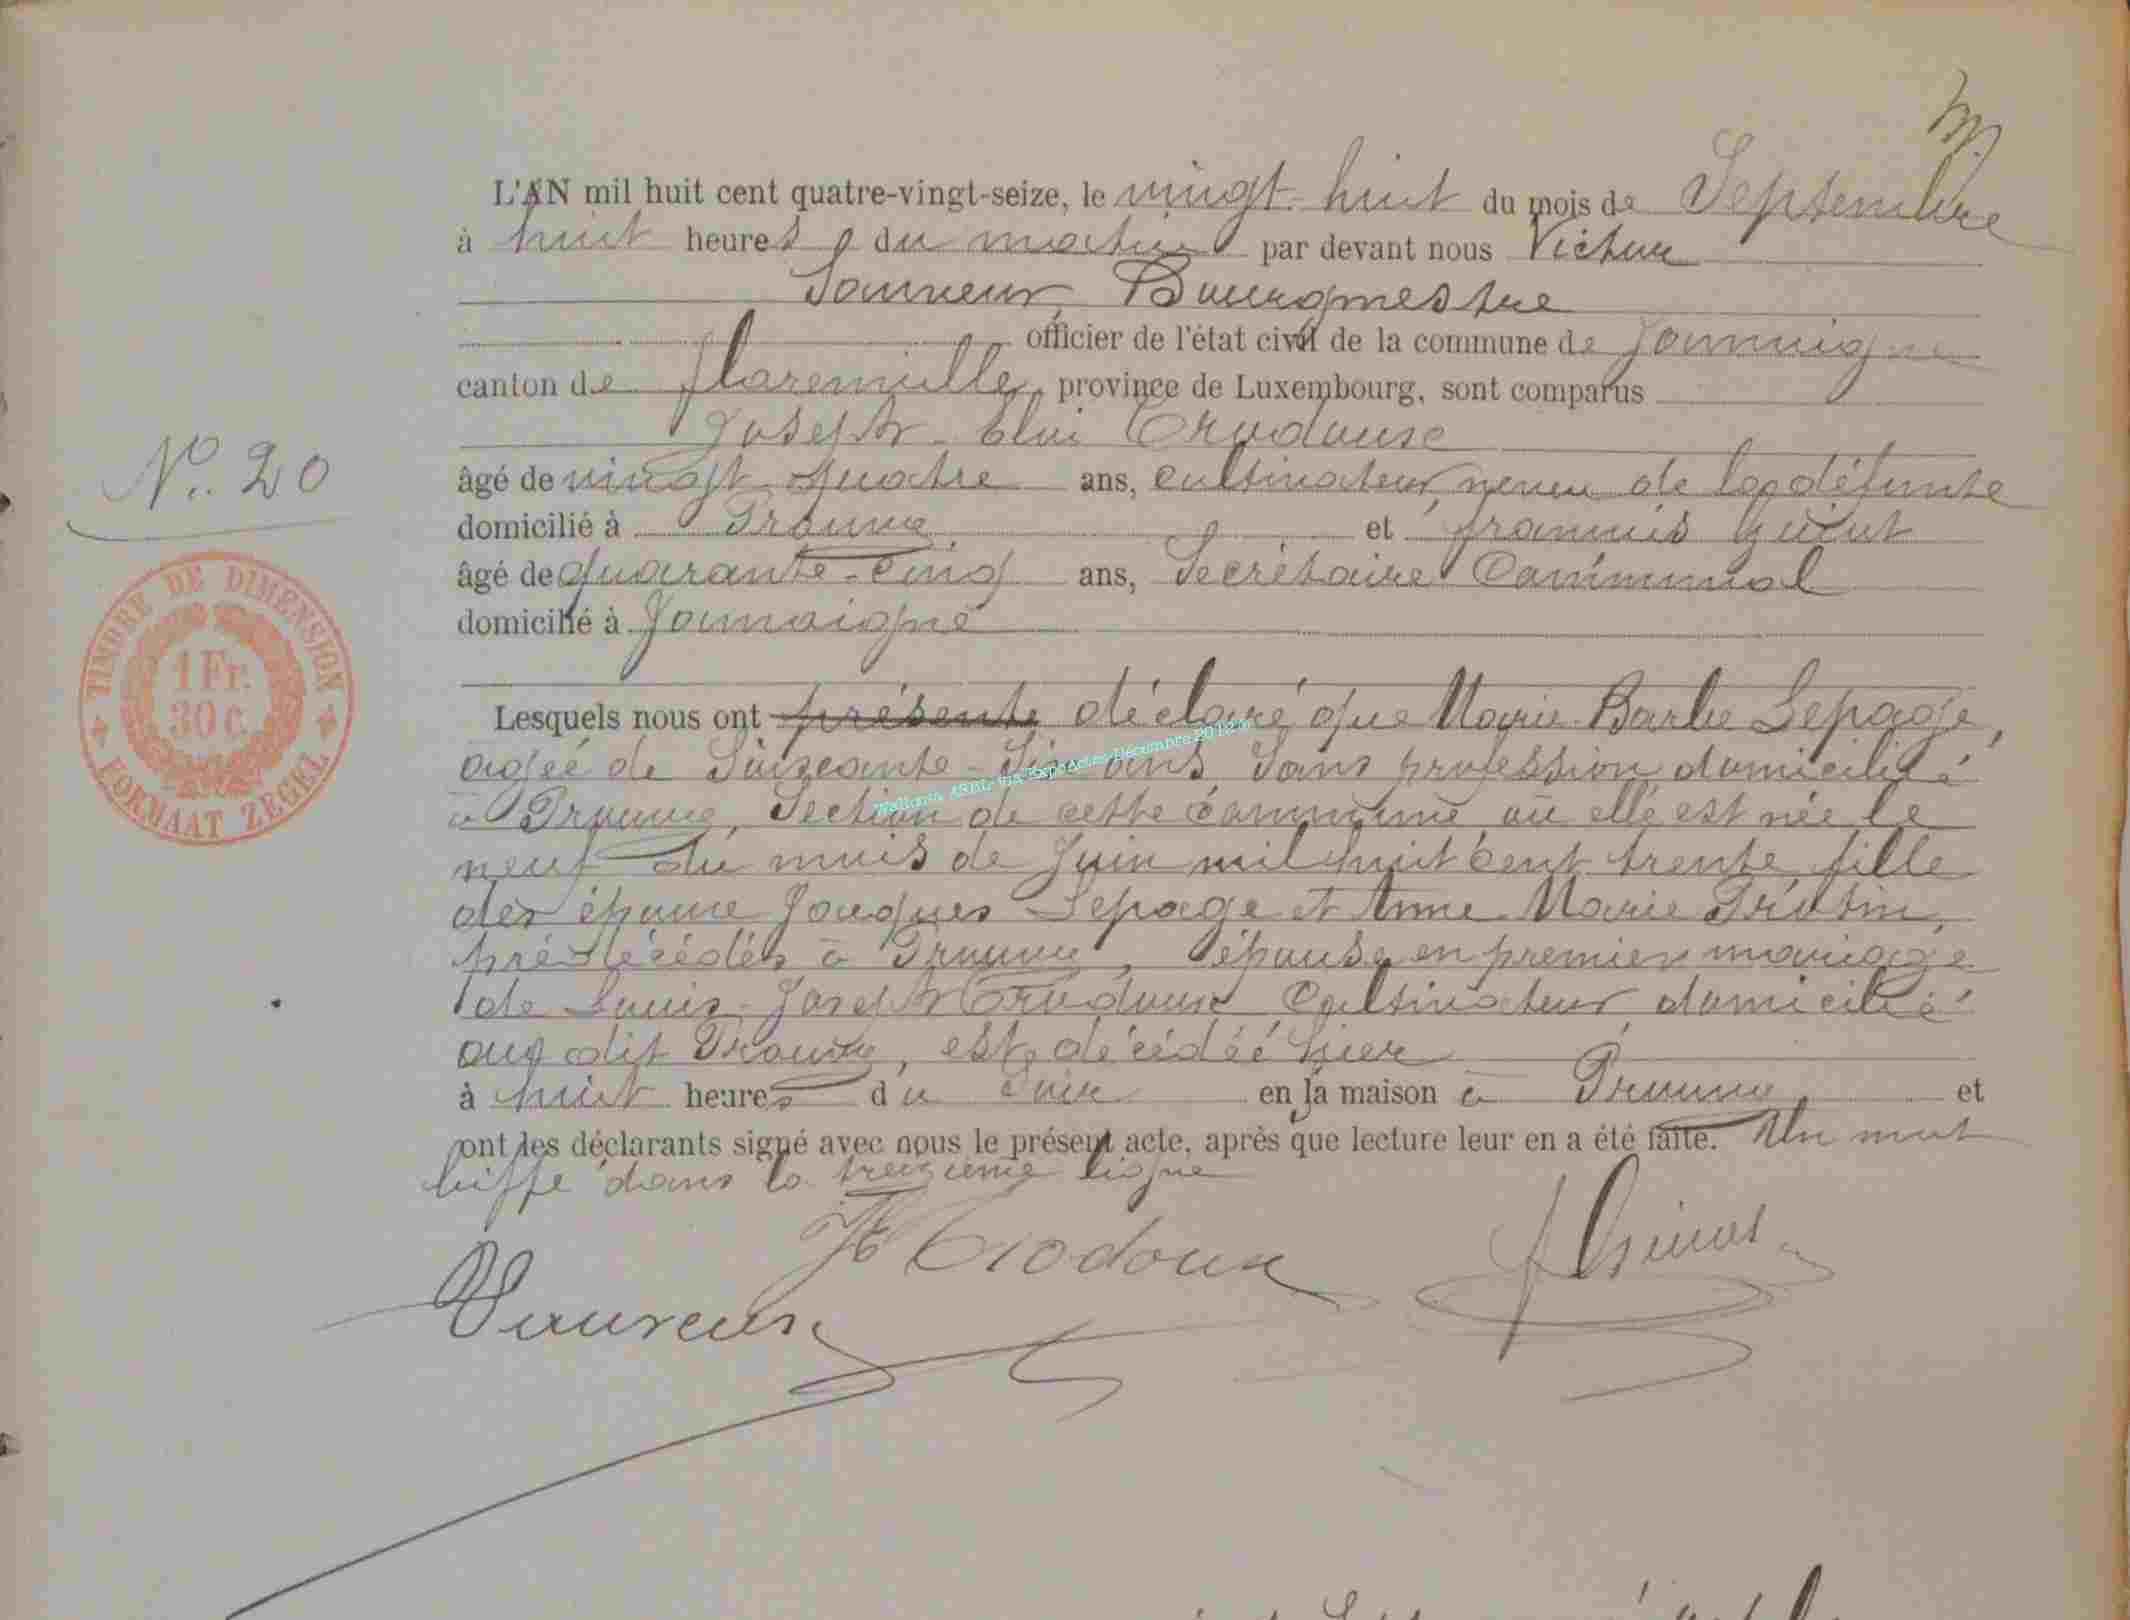 L'AN mil huit cent quatre-vingt-seize, le vingt-huit du mois de Septembre
à huit heures du matin par devant nous Victor
Sauveur, Bourgmestre
officier de l'état civil de la commune de Jamoigne
canton de Florenville, province de Luxembourg, sont comparus
Joseph-Eloi Crodoux
âgé de vingt-quatre ans, cultivateur, neveu de la défunte
domicilié à Prouvy et François
âgé de quarante-cinq ans, Secrétaire Communal
domicilié à Jamoigne
N° 20
TIMBRE DE DIMENSION
1 Fr.
30 c.
FORMAAT ZEGEL
Lesquels nous ont présenté déclaré que Marie Barbe Lepage,
agée de Soixante-Six ans, Sans profession domiciliée
à Prouvy, Section de cette commune, où elle est née le
neuf du mois de Juin mil huit cent trente, fille
des époux Jacques Lepage et Anne Marie
prédécédés à Prouvy, épouse en premier mariage
de Louis-Joseph Crodoux Cultivateur domicilié
au dit Prouvy, est décédée hier
à huit heures du Soir en la maison à Prouvy et
ont les déclarants signé avec nous le présent acte, après que lecture leur en a été faite. Un mot
biffé dans la treizième ligne
Crodoux
Sauveur